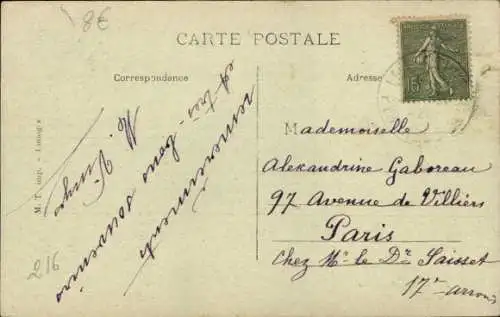 8€
CARTE POSTALE
Correspondance
Adresse
15c
Mademoiselle
Alexandrine Gaboreau
97 Avenue de Villiers
Paris
Chez Mr le Dr Saisset
17e arrond
remerciements
et très
bons souvenirs
M. T. imp. - Limoges
216